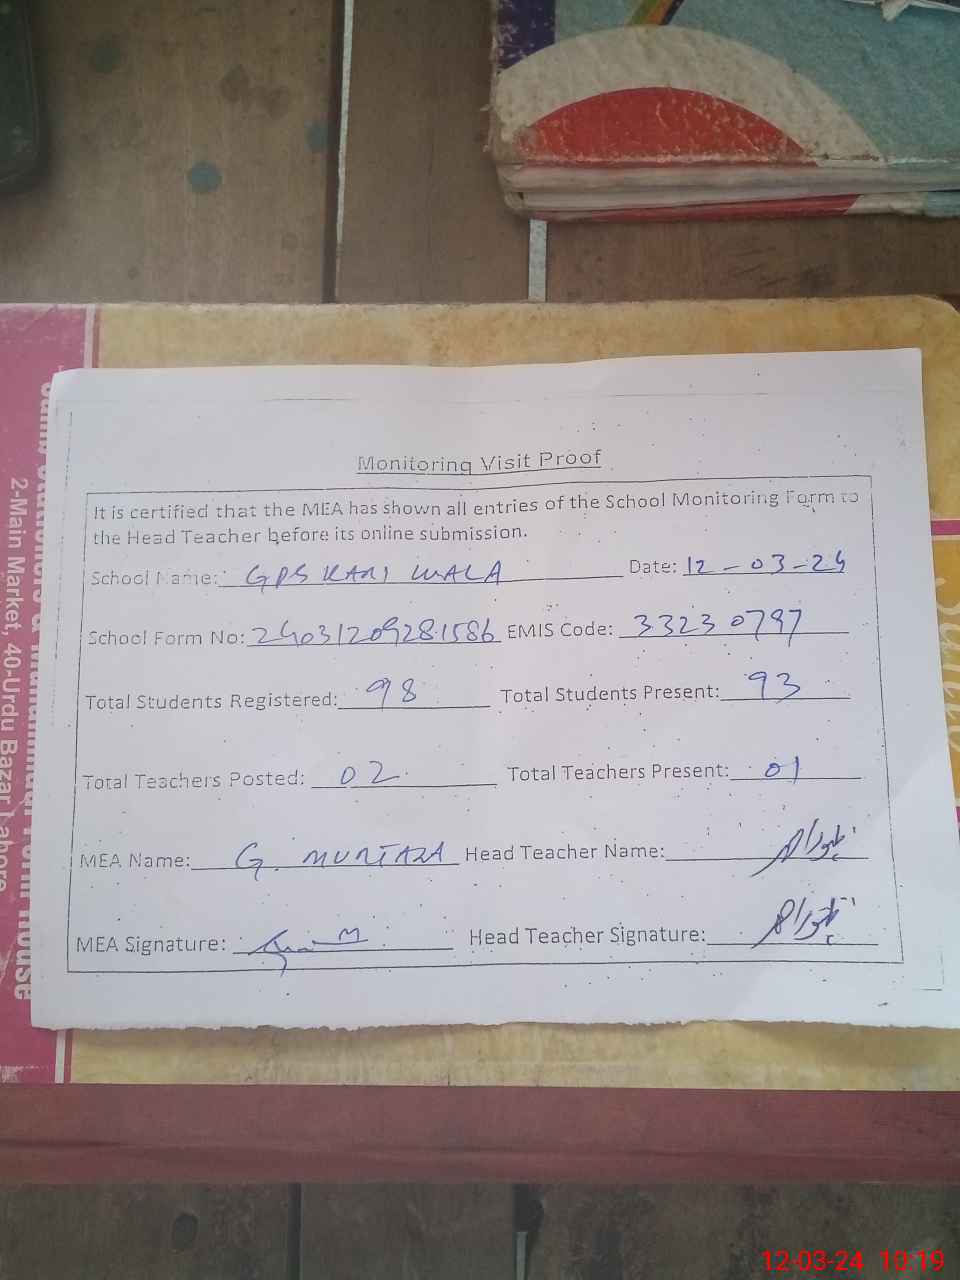 Monitoring Visit Proof
It is certified that the MEA has shown all entries of the School Monitoring Form to
the Head Teacher before its online submission.
School Name: GPS KARI WALA Date: 12-03-24
School Form No: 24031209281586 EMIS Code: 33230797
Total Students Registered: 98 Total Students Present: 93
Total Teachers Posted: 02 Total Teachers Present: 01
MEA Name: G. MURTAZA Head Teacher Name:
MEA Signature: Head Teacher Signature:
2-Main Market, 40-Urdu Bazar Lahore
House
12-03-24 10:19